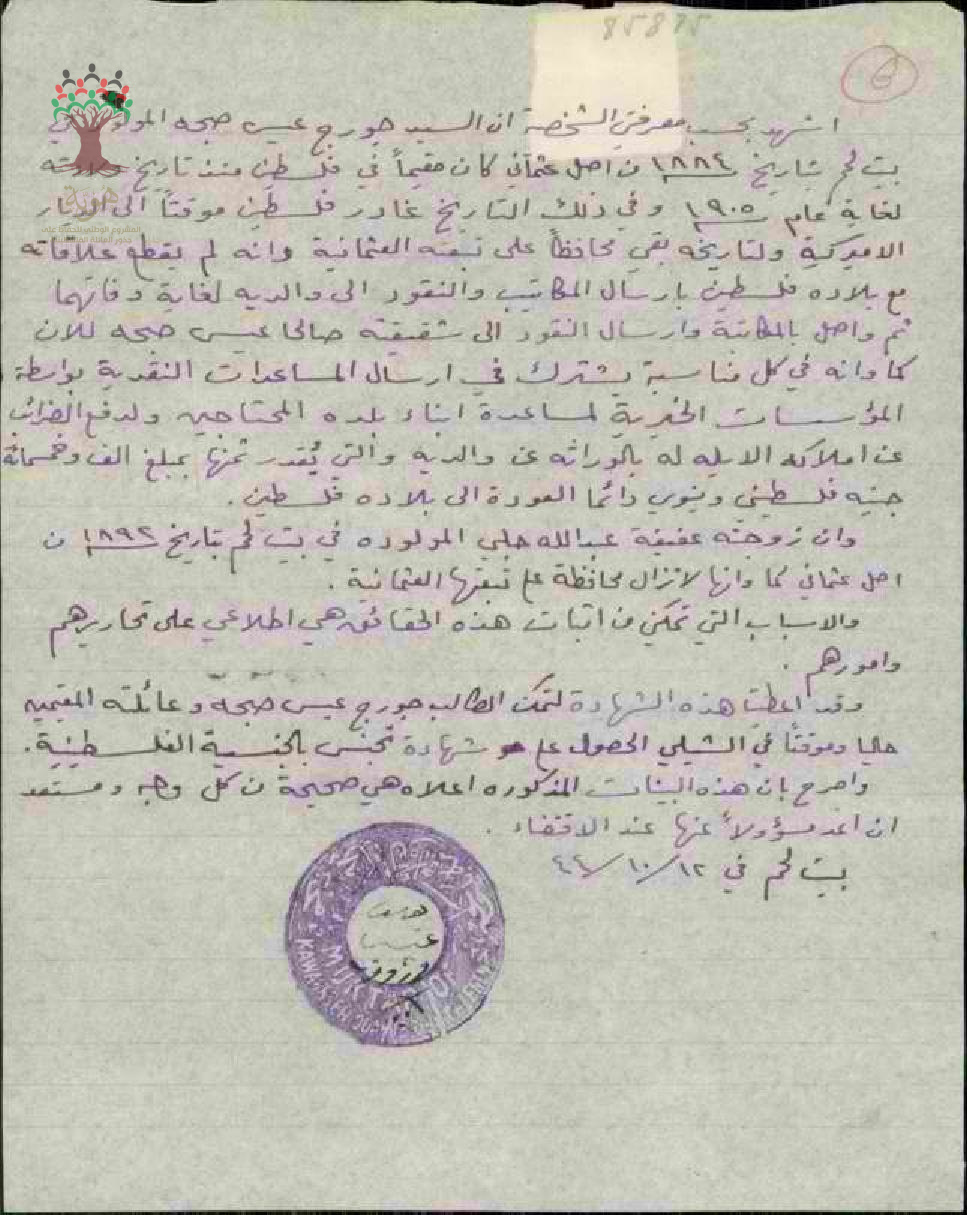 85875
6
اشهد بحسب معرفتي الشخصية ان السيد جورج عيسى صبحه المولود في
بيت لحم بتاريخ ١٨٨٤ من اصل عثماني كان مقيماً في فلسطين منذ تاريخ ولادته
لغاية عام ١٩٠٥ وفي ذلك التاريخ غادر فلسطين موقتاً الى الديار
الاميركية ولتاريخه بقي محافظاً على تبعته العثمانية وانه لم يقطع علاقاته
مع بلاده فلسطين بارسال المكاتيب والنقود الى والديه لغاية وفاتهما
ثم واصل بالمكاتبة وارسال النقود الى شقيقته صالحا عيسى صبحه للان
كما وانه في كل مناسبة يشترك في ارسال المساعدات النقدية بواسطة
المؤسسات الخيرية لمساعدة ابناء بلده المحتاجين ولدفع الضرائب
عن املاكه الايله له بالوراثه عن والديه والتي يُقدر ثمنها بمبلغ الف وخمسمائة
جنيه فلسطيني وينوي دائما العودة الى بلاده فلسطين .
وان زوجته عفيفة عبدالله حلبي المولوده في بيت لحم بتاريخ ١٨٩٢ من
اصل عثماني كما وانها لا تزال محافظة على تبعتها العثمانية .
والاسباب التي تمكني من اثبات هذه الحقائق هي اطلاعي على تحاريرهم
وامورهم .
وقد اعطيت هذه الشهادة لتمكن الطالب جورج عيسى صبحه وعائلته المقيمين
حاليا وموقتاً في التشيلي الحصول على شهادة تجنس بالجنسية الفلسطينية .
واصرح بان هذه البينات المذكوره اعلاه هي صحيحة من كل وجه ومستعد
ان اعد مسؤولاً عنها عند الاقتضاء .
بيت لحم في ١٢/١٠/٤٤
MUKTAR OF
KAWAWSEH
هوية